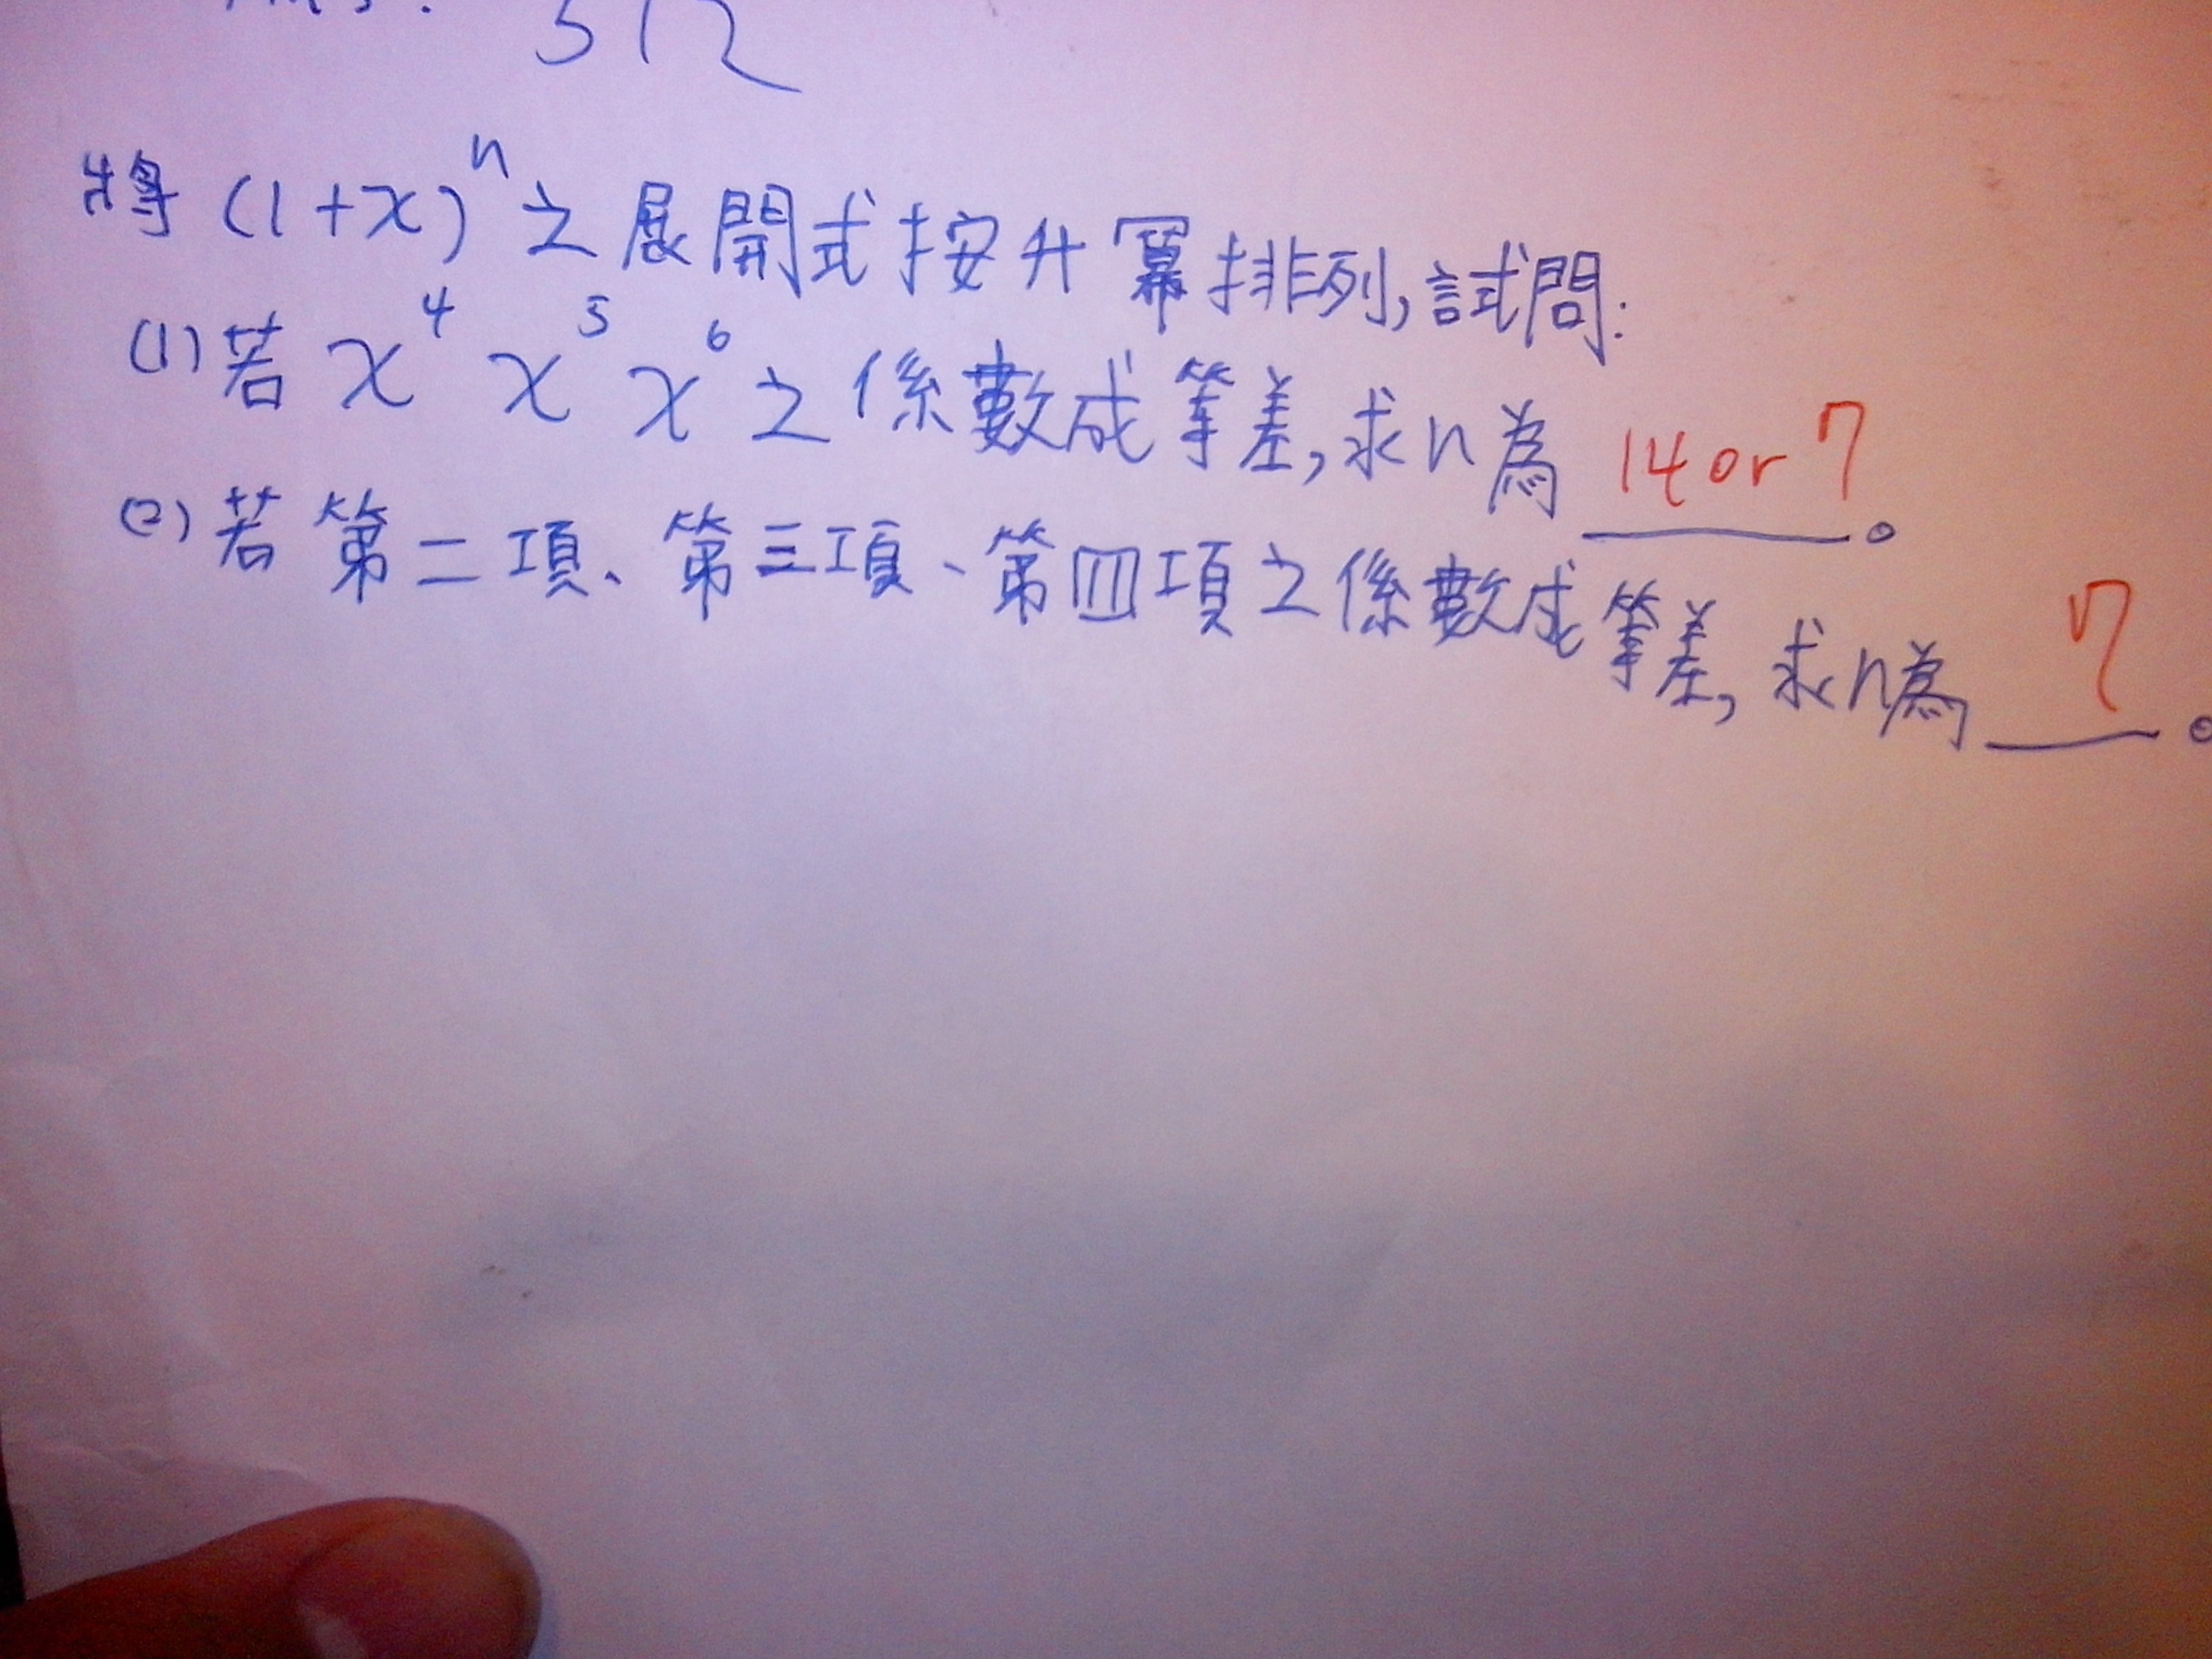 512
將(1+x)ⁿ之展開式按升冪排列,試問:
(1)若 x⁴ x⁵ x⁶之係數成等差,求n為 14 or 7 。
(2)若第二項、第三項、第四項之係數成等差,求n為 7 。